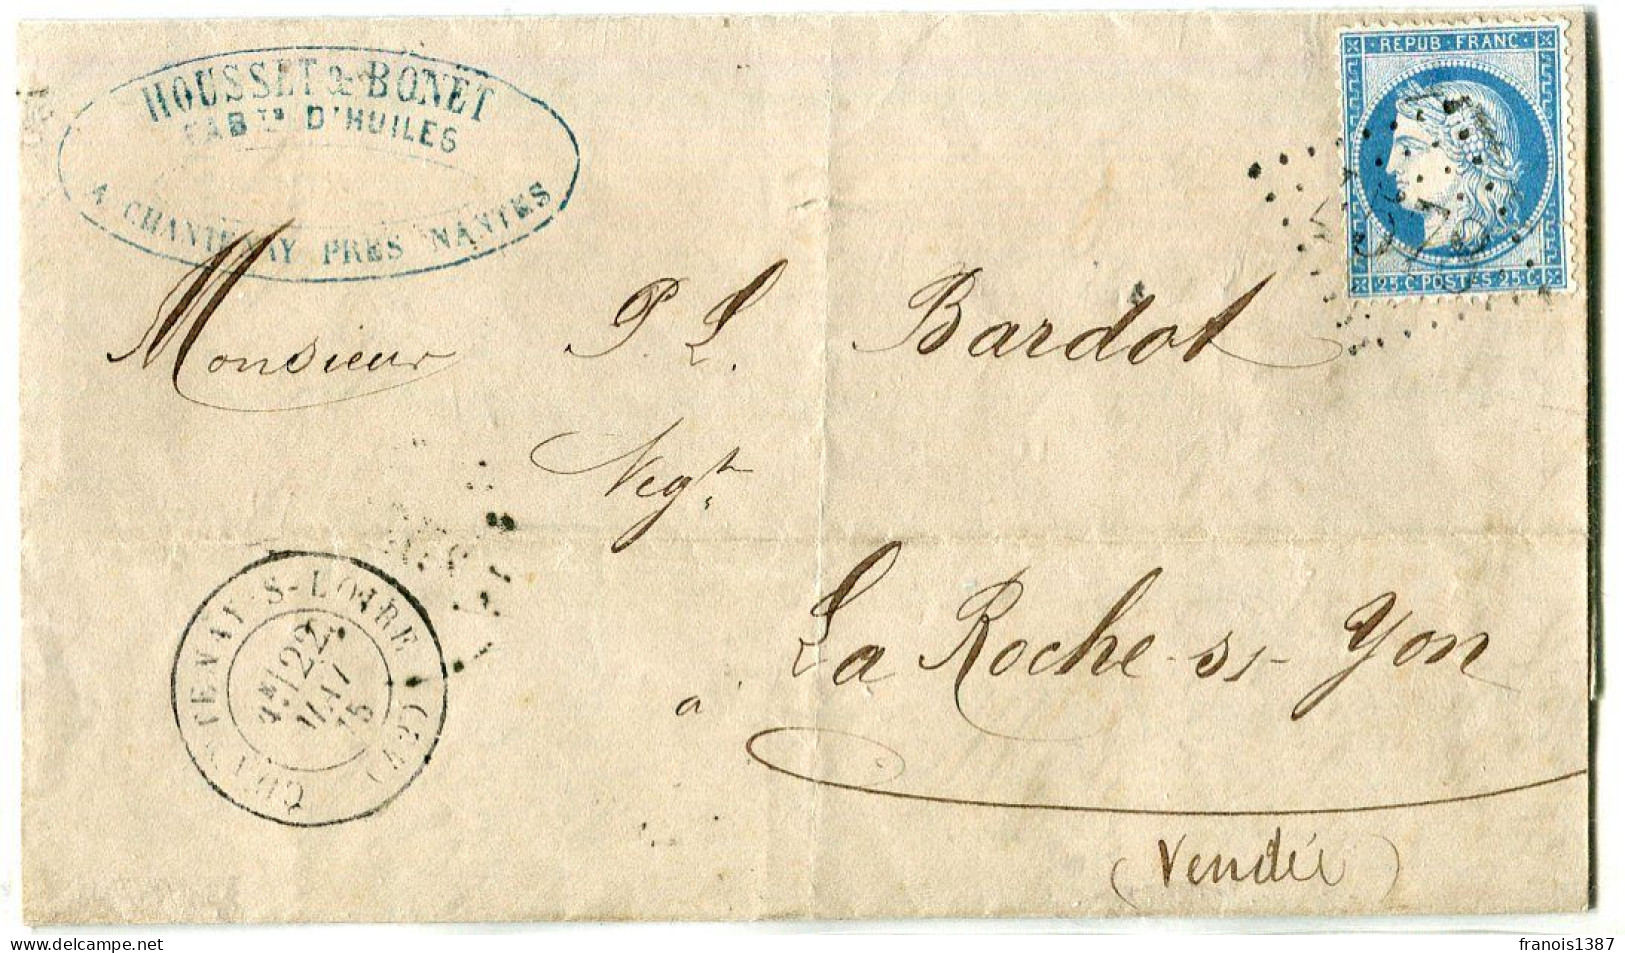 HOUSSET & BONET
FABTS D'HUILES
A CHANTENAY PRES NANTES
REPUB · FRANC ·
25 C POSTES 25 C
Monsieur P. L. Bardot
Negt
à La Roche-s-Yon
(Vendée)
CHANTENAY-S-LOIRE (42)
22
MAI
75
franois1387